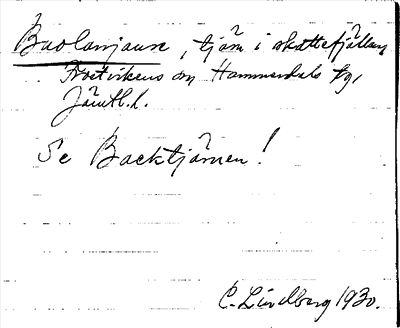 Buolanjaure, tjärn i skattefjällen,
Frostvikens sn, Hammerdals tg,
Jämtl. l.
Se Backtjärnen!
C. Lindberg 1930.